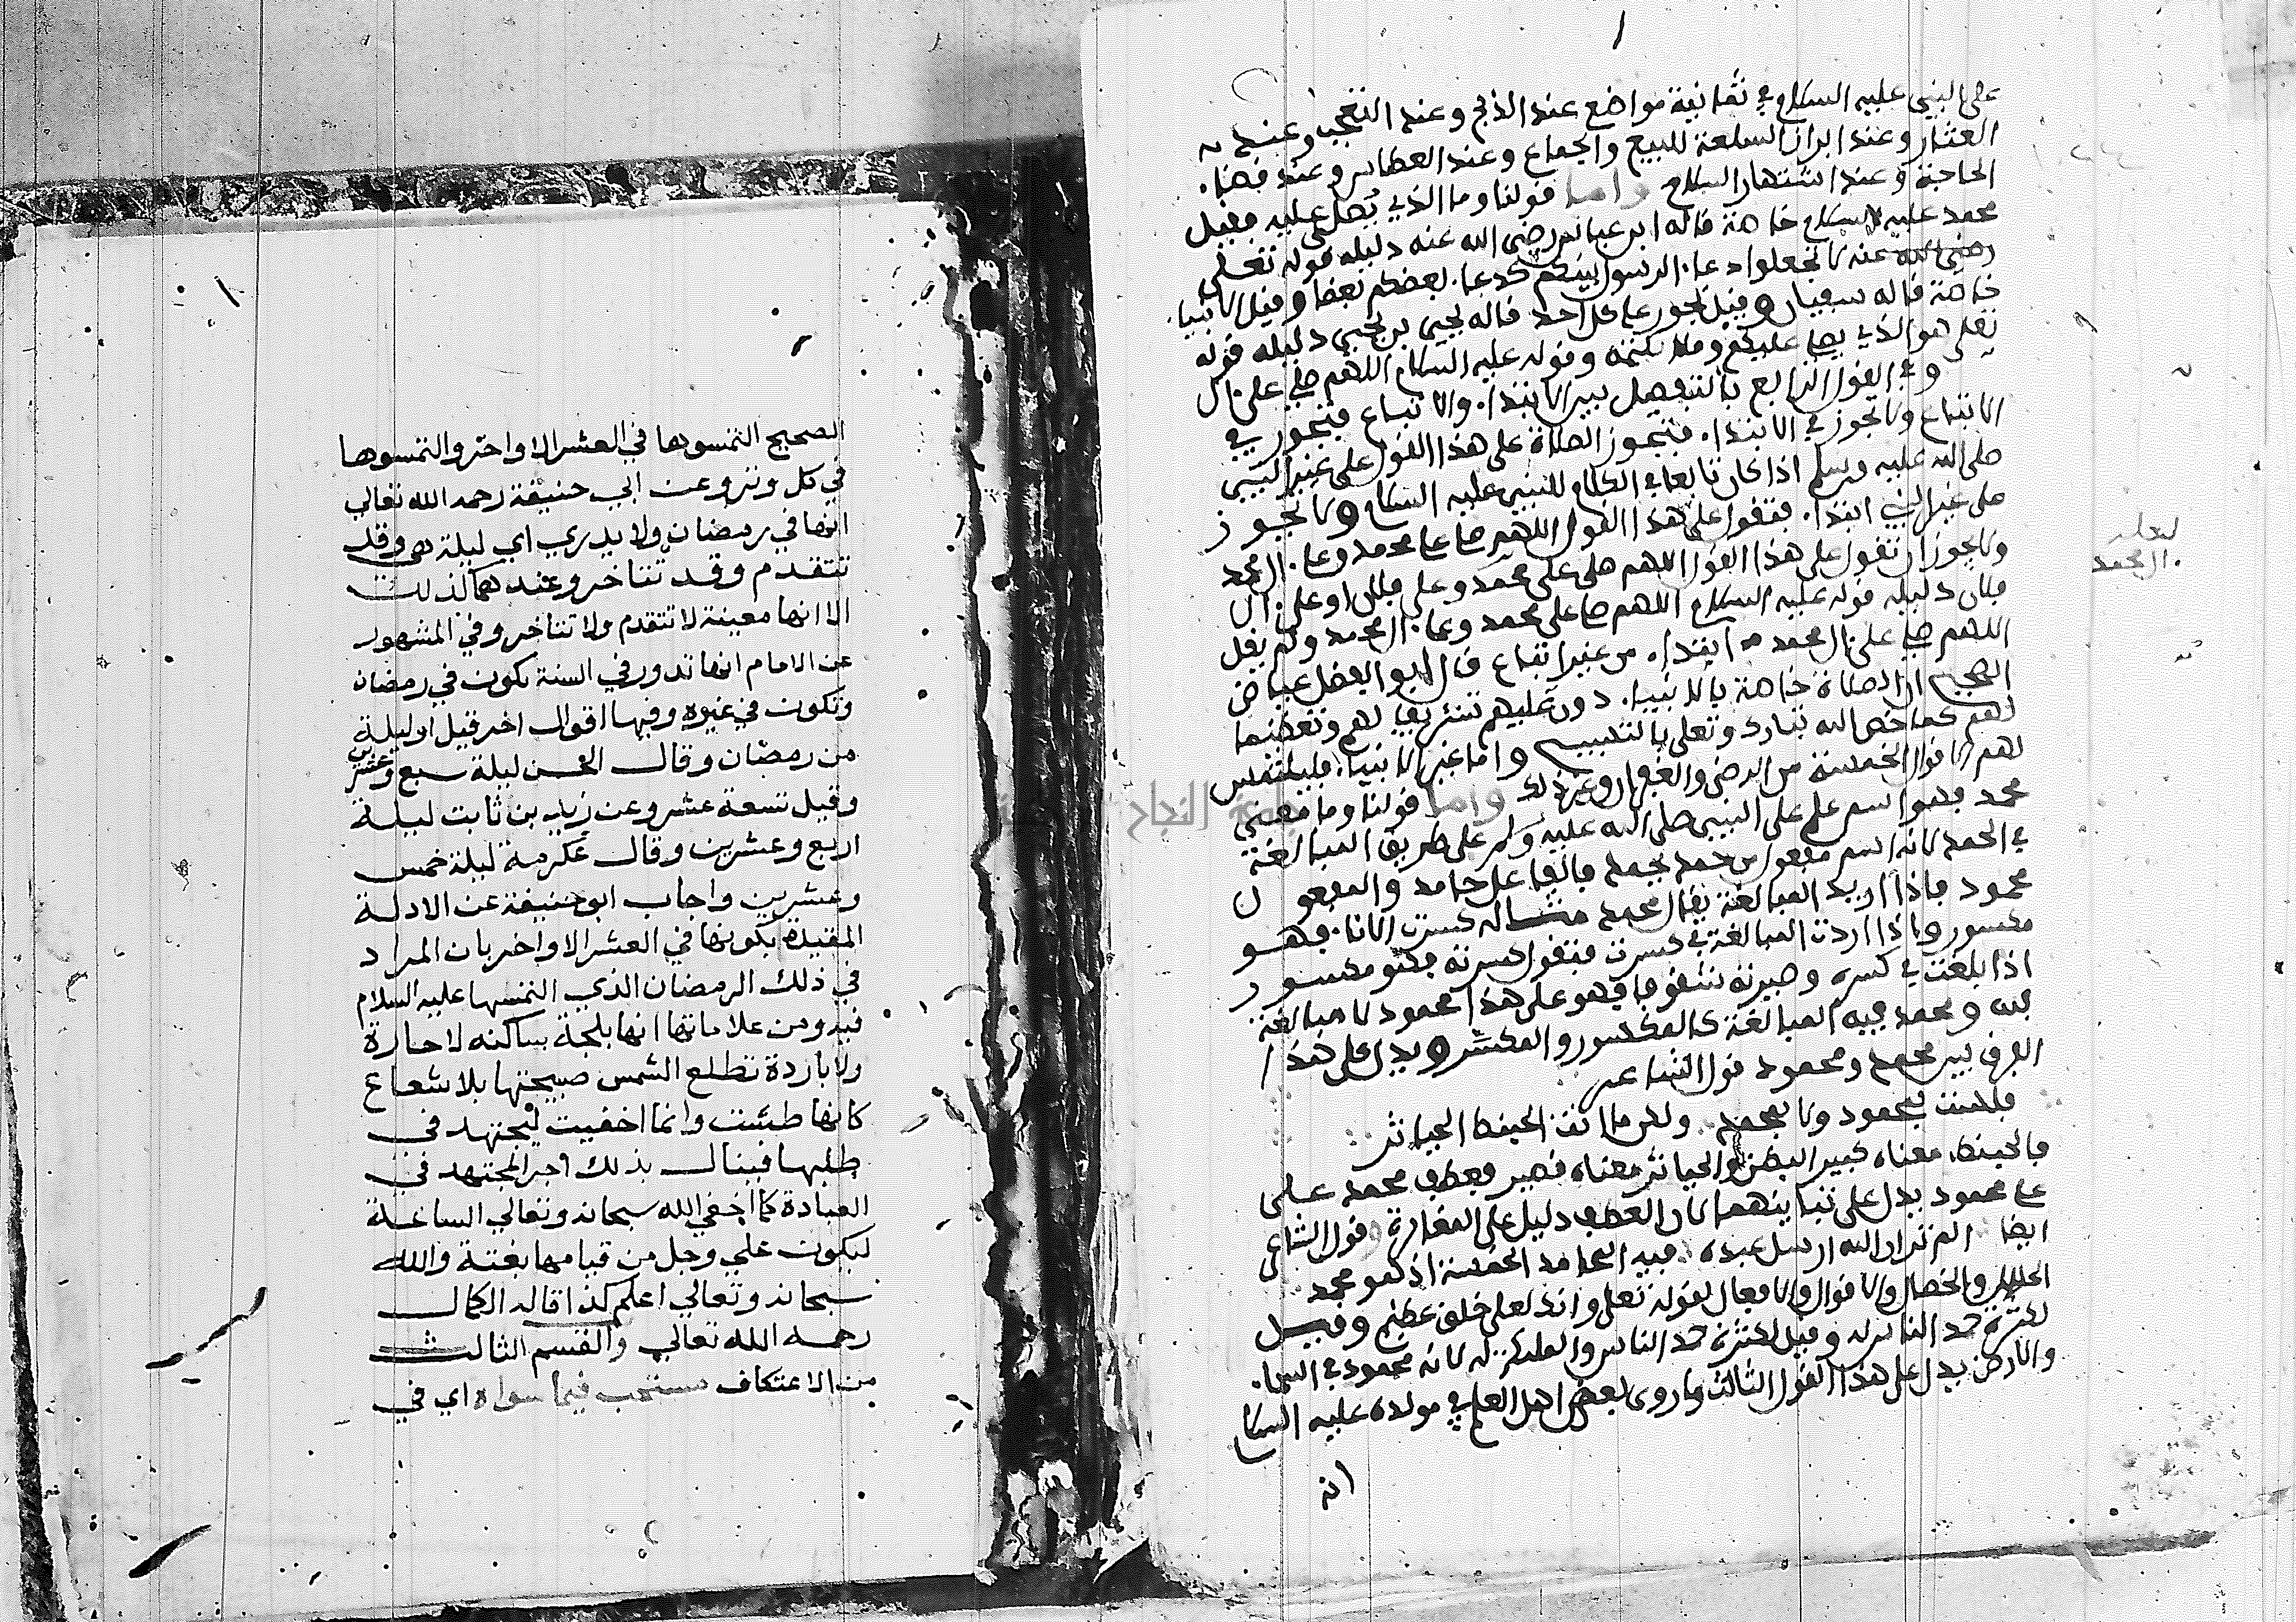 على النبي عليه السلام في ثمانية مواضع عند الذبح وعند التعجب وعند
العثار وعند ابراز السلعة للبيع والجماع وعند العطاس وعند قضاء
الحاجة وعند اشتهار السلام واما قولنا وما الذي يصلى عليه فقيل
محمد عليه السلام خاصة قاله ابن عباس رضي الله عنه دليله قوله تعلى
رضي الله عنه لا تجعلوا دعاء الرسول بينكم كدعاء بعضكم بعضا وقيل الانبياء
خاصة قاله سفيان وقيل يجوز على كل احد قاله يحيى بن يحيى دليله قوله
تعلى هو الذي يصلي عليكم وملائكته وقوله عليه السلام اللهم صلي على ال
وفي القول الرابع بالتفصيل بين الابتداء والاتباع فيجوز في
الاتباع ولا يجوز في الابتداء فتجوز الصلاة على هذا القول على غير النبي
صلى الله عليه وسلم اذا كان تابعا في الكلام للنبي عليه السلام ولا يجوز
على غير النبي ابتداء فتقول على هذا القول اللهم صل على محمد وعلى ال محمد
ولا يجوز ان تقول على هذا القول اللهم صلى على محمد وعلى فلان او على ال
فلان دليله قوله عليه السلام اللهم صل على محمد وعلى ال محمد ولم يقل
اللهم صلي على ال محمد ابتداء من غير اتباع قال ابو الفضل عياض
الصحيح ان الصلاة خاصة بالانبياء دون غيرهم تشريفا لهم وتعظيما
لهم كما خص الله تبارك وتعلى بالتسبيح واما غير الانبياء فليلتمس
لهم الاقوال الخمسة من الرضى والغفران وغير ذلك واما قولنا وما معنى
محمد فهو اسم علم على النبي صلى الله عليه وسلم على طريق المبالغة
في الحمد لانه اسم مفعول من حمد يحمد فالفاعل حامد والمفعول
محمود فاذا اريد المبالغة يقال محمد مثاله كسرت الاناء فهو
مكسور واذا اردت المبالغة في كسرت فتقول كسرته فهو مكسور
اذا بلغت في كسره وصيرته شقوفا فهو على هذا محمود لا مبالغة
فيه ومحمد فيه المبالغة كالمكسور والمكسر ويدل على هذا
الفرق بين محمد ومحمود قول الشاعر
فلست بمحمود ولا بمحمد ولكن ما انت الحبنطا الحباتر
فالحبنطاء معناه كبير البطن والحباتر معناه قصير فعطف محمد على
على محمود يدل على تباينهما لان العطف دليل على المغايرة وقول الشاعر
ايضا الم تر ان الله ارسل عبده فبه المحامد الخمسة اذ هو محمد
الخلال والخصال والاقوال والافعال لقوله تعلى وانك لعلى خلق عظيم وقيل
لكثرة حمد الناس له وقيل لكثرة حمد الناس والملائكة له لانه محمود في السماء
والارض يدل على هذا القول الثالث ما روى بعض اهل العلم في مولده عليه السلام
انه
لعله
ال محمد
الصحيح التمسوها في العشر الاواخر والتمسوها
في كل وتر وعن ابي حنيفة رحمه الله تعالي
انها في رمضان ولا يدري اي ليلة هي وقد
تتقدم وقد تتاخر وعندهما كذلك
الا انها معينة لا تتقدم ولا تتاخر وفي المشهور
عن الامام انها تدور في السنة تكون في رمضان
وتكون في غيره وفيها اقوال اخر قيل اول ليلة
من رمضان وقال الحسن ليلة سبع وعشرين
وقيل تسعة عشر وعن زيد بن ثابت ليلة
اربع وعشرين وقال عكرمة ليلة خمس
وعشرين واجاب ابو حنيفة عن الادلة
المقيدة بكونها في العشر الاواخر بان المراد
في ذلك الرمضان الذي التمسها عليه السلام
فيه ومن علاماتها انها بلجة ساكنه لا حارة
ولا باردة تطلع الشمس صبيحتها بلا شعاع
كانها طشت وانما اخفيت ليجتهد في
طلبها فينال بذلك اجر المجتهد في
العبادة كما اخفي الله سبحانه وتعالي الساعة
ليكون علي وجل من قيامها بغتة والله
سبحانه وتعالي اعلم كذا قاله الكمال
رحمه الله تعالي والقسم الثالث
من الاعتكاف مستحب فيما سواه اي في
جامعة النجاح